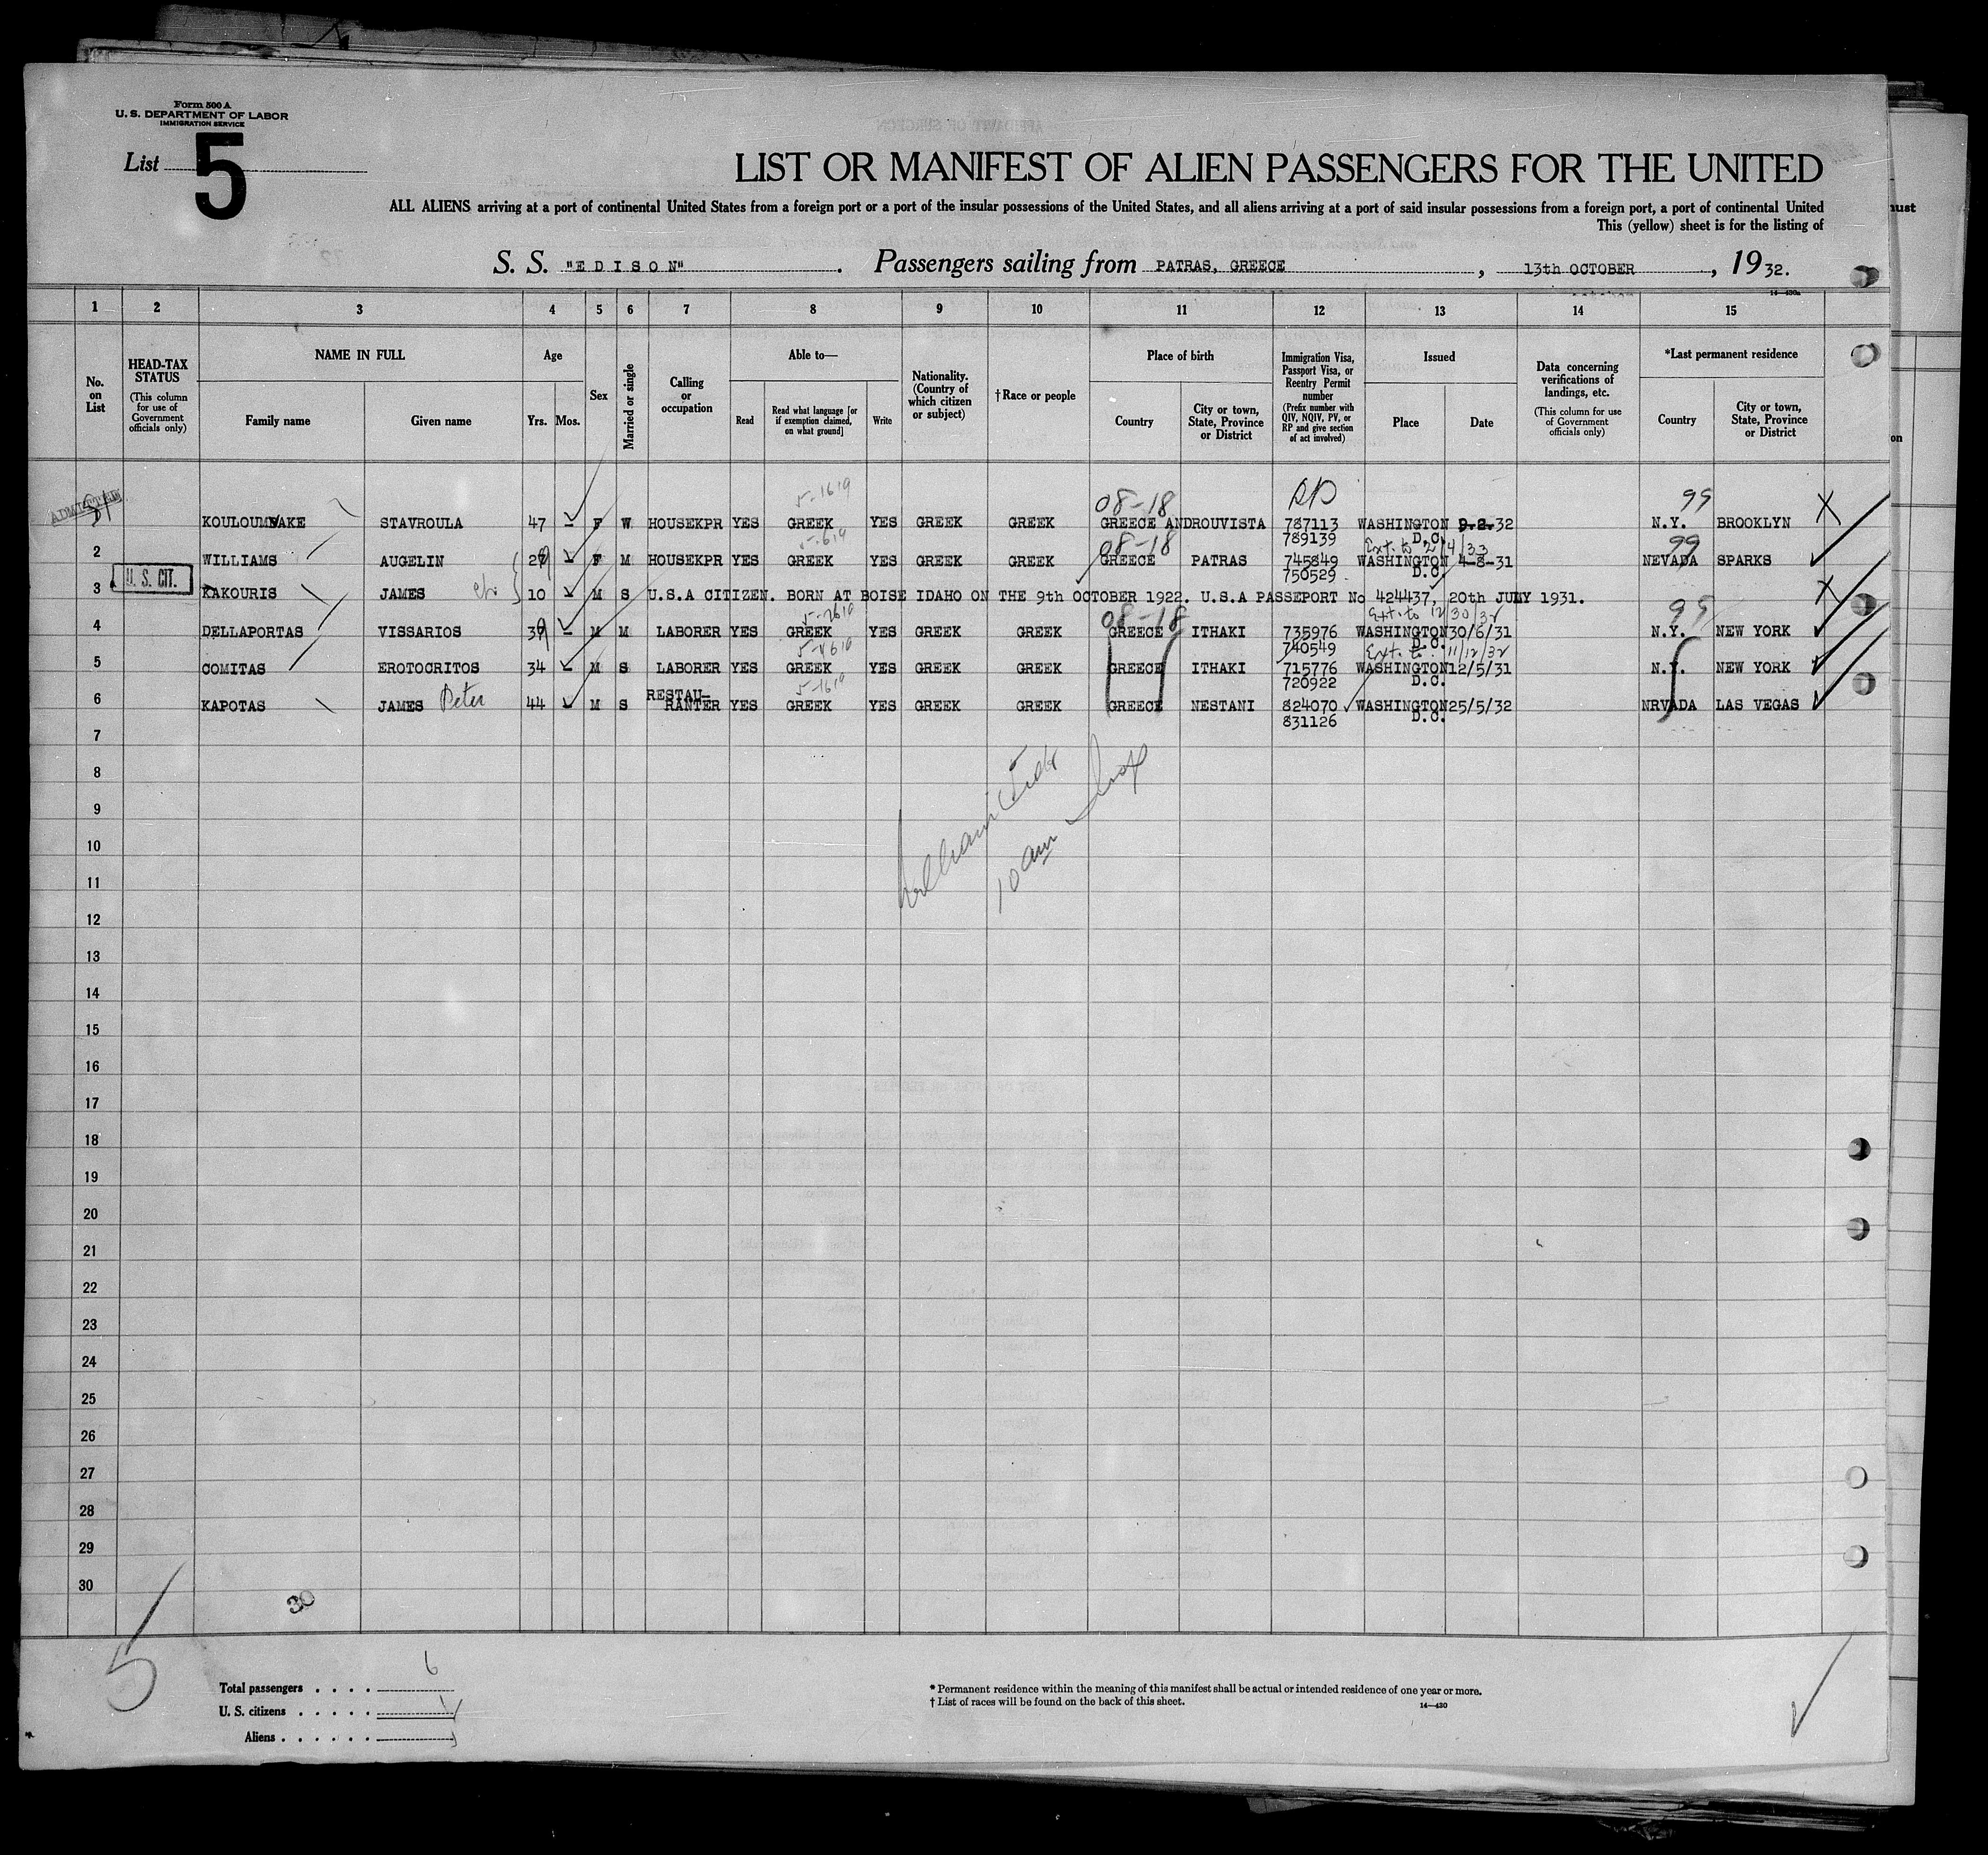 Form 500 A
U. S. DEPARTMENT OF LABOR
IMMIGRATION SERVICE
List 5
LIST OR MANIFEST OF ALIEN PASSENGERS FOR THE UNITED
ALL ALIENS arriving at a port of continental United States from a foreign port or a port of the insular possessions of the United States, and all aliens arriving at a port of said insular possessions from a foreign port, a port of continental United
This (yellow) sheet is for the listing of
S. S. "EDISON" . Passengers sailing from PATRAS, GREECE , 13th OCTOBER , 19 32.
1 2 3 4 5 6 7 8 9 10 11 12 13 14 15
No. on List
HEAD-TAX STATUS
(This column for use of Government officials only)
NAME IN FULL
Family name Given name
Age
Yrs. Mos.
Sex
Married or single
Calling or occupation
Able to—
Read Read what language [or if exemption claimed, on what ground] Write
Nationality. (Country of which citizen or subject)
†Race or people
Place of birth
Country City or town, State, Province or District
Immigration Visa, Passport Visa, or Reentry Permit number
(Prefix number with QIV, NQIV, PV, or RP and give section of act involved)
Issued
Place Date
Data concerning verifications of landings, etc.
(This column for use of Government officials only)
*Last permanent residence
Country City or town, State, Province or District
ADMITTED
RP
08-18 99
STAVROULA 47 – F W HOUSEKPR YES GREEK YES GREEK GREEK GREECE ANDROUVISTA 787113 WASHINGTON 9.2.32 N.Y. BROOKLYN
789139 D.C.
08-18 Ext. to 2/4/33 99
2 WILLIAMS AUGELIN F M HOUSEKPR YES GREEK YES GREEK GREEK GREECE PATRAS 745849 WASHINGTON 4-8-31 NEVADA SPARKS
750529 D.C.
U. S. CIT.
3 KAKOURIS JAMES 10 – M S U.S.A CITIZEN. BORN AT BOISE IDAHO ON THE 9th OCTOBER 1922. U.S.A PASSEPORT No 424437, 20th JULY 1931.
08-18 Ext. to 12/30/32 99
4 DELLAPORTAS VISSARIOS 39 – M M LABORER YES GREEK YES GREEK GREEK GREECE ITHAKI 735976 WASHINGTON 30/6/31 N.Y. NEW YORK
740549 D.C.
Ext. to 11/12/32
5 COMITAS EROTOCRITOS 34 – M S LABORER YES GREEK YES GREEK GREEK GREECE ITHAKI 715776 WASHINGTON 12/5/31 N.Y. NEW YORK
720922 D.C.
6 KAPOTAS JAMES Peter 44 – M S RESTAU-RANTER YES GREEK YES GREEK GREEK GREECE NESTANI 824070 WASHINGTON 25/5/32 NRVADA LAS VEGAS
831126 D.C.
7
8
9
10
11
12
13
14
15
16
17
18
19
20
21
22
23
24
25
26
27
28
29
30
10 am
30
5
Total passengers . . . . 6
U. S. citizens . . . . . 1
Aliens . . . . . .
* Permanent residence within the meaning of this manifest shall be actual or intended residence of one year or more.
† List of races will be found on the back of this sheet.
14—430